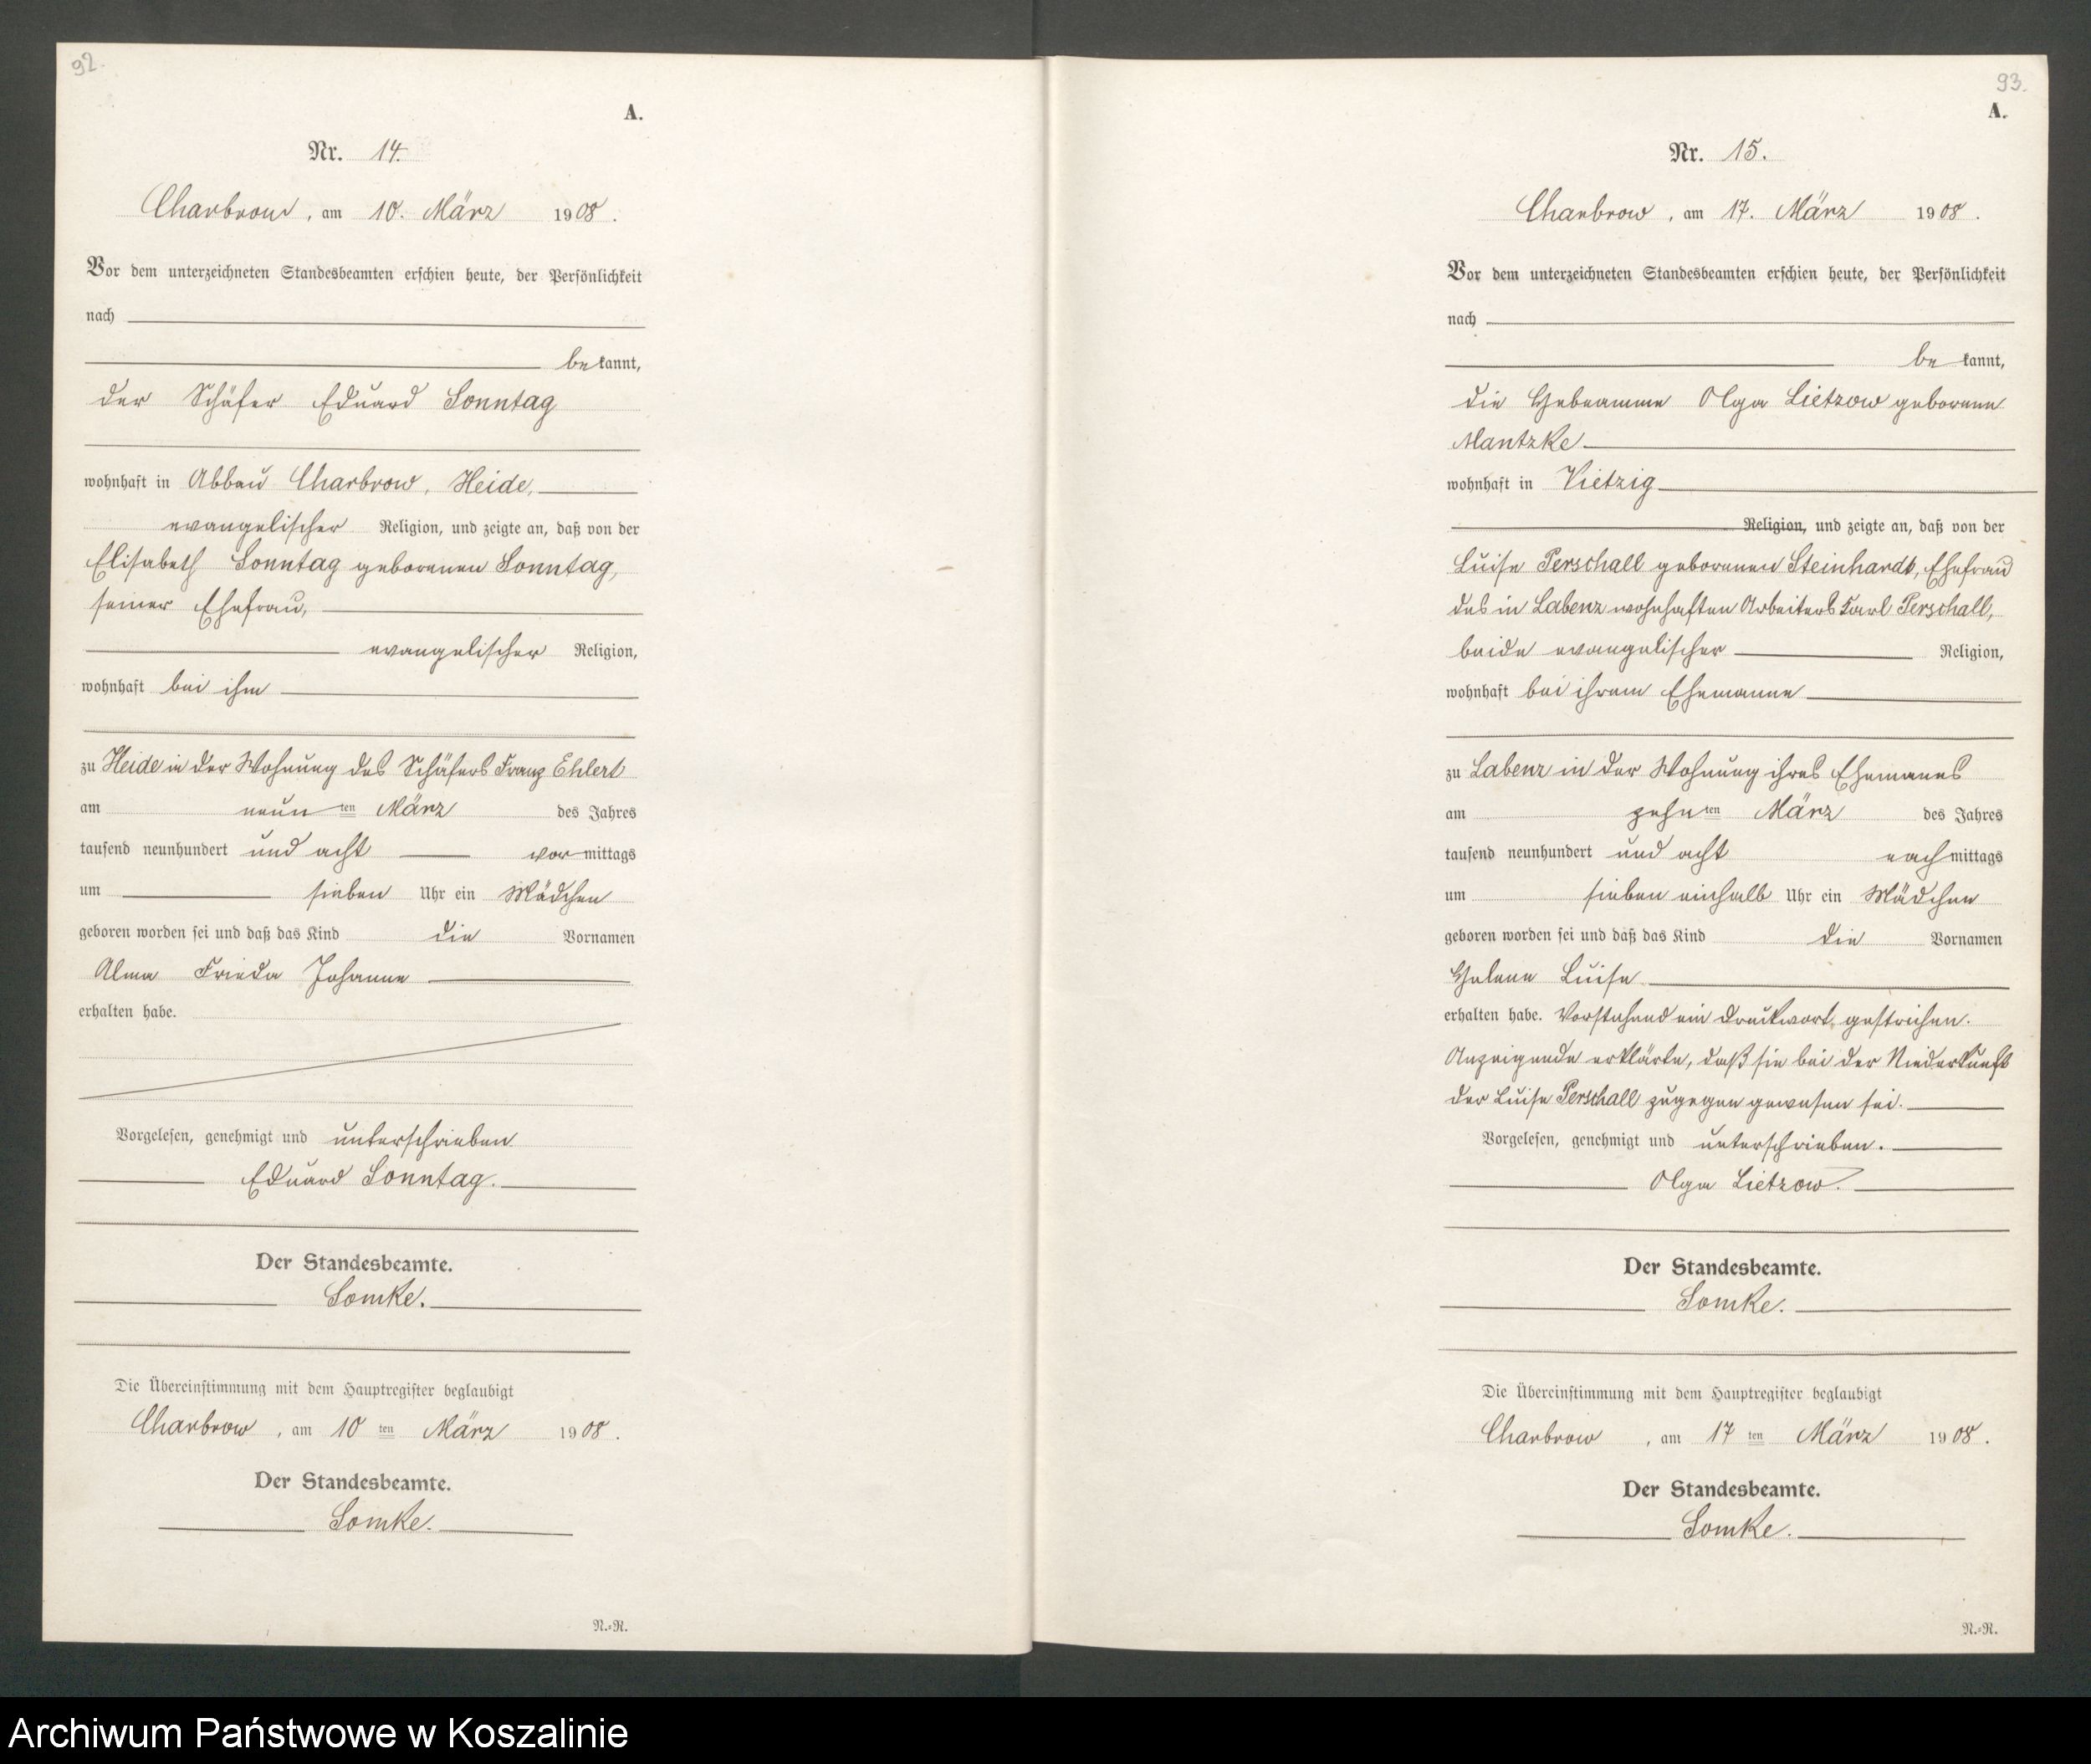 92.
A.
Nr. 14.
Charbrow, am 10. März 1908.
Vor dem unterzeichneten Standesbeamten erschien heute, der Persönlichkeit
nach
bekannt,
der Schäfer Eduard Sonntag
wohnhaft in Abbau Charbrow, Heide,
evangelischer Religion, und zeigte an, daß von der
Elisabeth Sonntag geborenen Sonntag,
seiner Ehefrau,
evangelischer Religion,
wohnhaft bei ihm
zu Heide in der Wohnung des Schäfers Franz Ehlert
am neunten März des Jahres
tausend neunhundert und acht vormittags
um sieben Uhr ein Mädchen
geboren worden sei und daß das Kind die Vornamen
Alma Frieda Johanne
erhalten habe.
Vorgelesen, genehmigt und unterschrieben
Eduard Sonntag.
Der Standesbeamte.
Somke.
Die Übereinstimmung mit dem Hauptregister beglaubigt
Charbrow, am 10ten März 1908.
Der Standesbeamte.
Somke.
N.=R.
93.
A.
Nr. 15.
Charbrow, am 17. März 1908.
Vor dem unterzeichneten Standesbeamten erschien heute, der Persönlichkeit
nach
bekannt,
die Hebeamme Olga Lietzow geborene
Mantzke
wohnhaft in Vietzig
Religion, und zeigte an, daß von der
Luise Perschall geborenen Steinhardt, Ehefrau
des in Labenz wohnhaften Arbeiters Karl Perschall,
beide evangelischer Religion,
wohnhaft bei ihrem Ehemanne
zu Labenz in der Wohnung ihres Ehemanes
am zehnten März des Jahres
tausend neunhundert und acht nachmittags
um sieben einhalb Uhr ein Mädchen
geboren worden sei und daß das Kind die Vornamen
Helene Luise
erhalten habe. Vorstehend ein Druckwort gestrichen.
Anzeigende erklärte, daß sie bei der Niederkunft
der Luise Perschall zugegen gewesen sei.
Vorgelesen, genehmigt und unterschrieben.
Olga Lietzow.
Der Standesbeamte.
Somke.
Die Übereinstimmung mit dem Hauptregister beglaubigt
Charbrow, am 17ten März 1908.
Der Standesbeamte.
Somke.
N.=R.
Archiwum Państwowe w Koszalinie